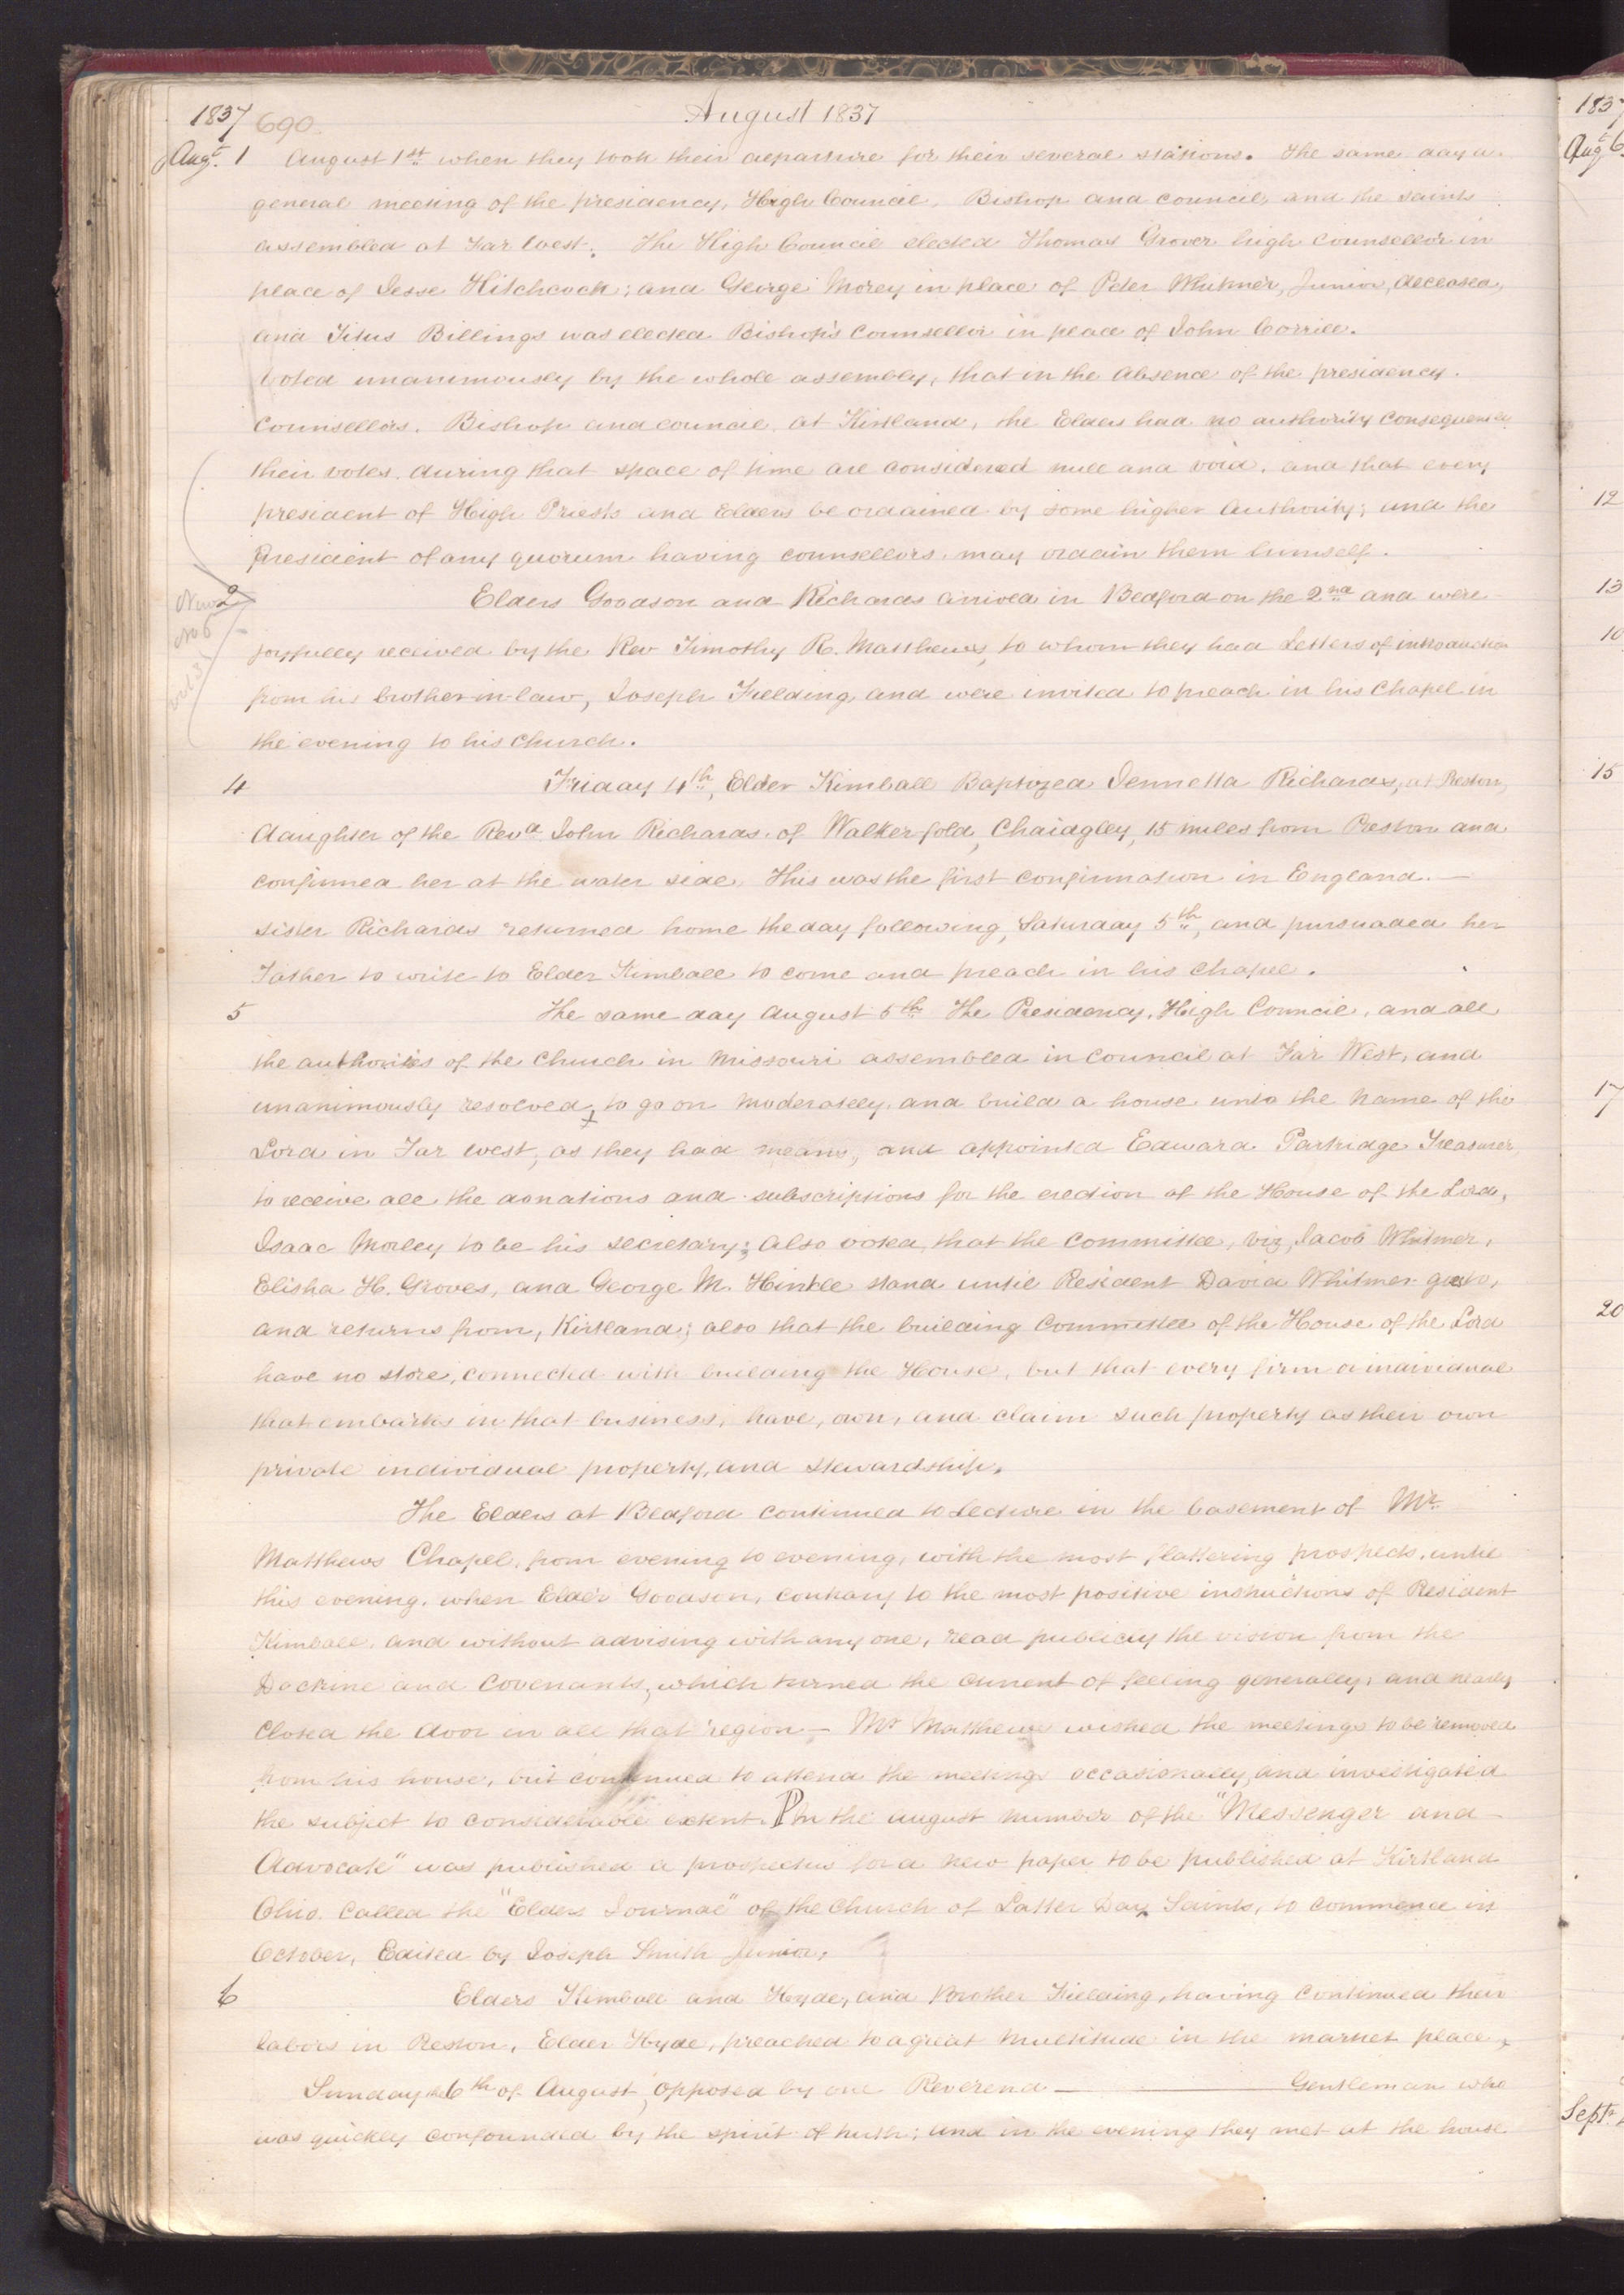 1837 690. August 1837
Augt. 1 August 1st when they took their departure for their several stations. The same day a
general meeting of the presidency, High Council, Bishop and council, and the saints
assembled at Far West. The High Council elected Thomas Grover high counsellor in
place of Jesse Hitchcock; and George Morey in place of Peter Whitmer, Junior, deceased,
and Titus Billings was elected Bishop's Counsellor in place of John Corrill.
Voted unanimously by the whole assembly, that in the absence of the presidency.
Counsellors. Bishop and council, at Kirtland, the Elders had no authority consequently
their votes, during that space of time are considered null and void, and that every
president of High Priests and Elders be ordained by some higher Authority; and the
President of any quorum having counsellors may ordain them himself.
2 Elders Goodson and Richards arrived in Bedford on the 2nd and were
joyfully received by the Rev Timothy R. Matthews, to whom they had Letters of introduction
from his brother-in-law, Joseph Fielding, and were invited to preach in his Chapel in
the evening to his church.
4 Friday 4th, Elder Kimball Baptized Jennetta Richards, at Preston,
daughter of the Revd. John Richards, of Walkerfold, Chaidgley, 15 miles from Preston and
confirmed her at the water side, This was the first confirmation in England.—
sister Richards returned home the day following, Saturday 5th, and pursuaded her
Father to write to Elder Kimball to come and preach in his Chapel.
5 The same day August 5th The Presidency, High Council, and all
the authorities of the Church in Missouri assembled in council at Far West, and
unanimously resolved, to go on moderately, and build a house unto the name of the
Lord in Far West, as they had means, and appointed Edward Partridge Treasurer
to receive all the donations and subscriptions for the erection of the House of the Lord,
Isaac Morley to be his secretary; Also voted, that the committee, viz, Jacob Whitmer,
Elisha H. Groves, and George M. Hinkle stand until President David Whitmer goes to,
and returns from, Kirtland; also that the building committee of the House of the Lord
have no store, connected with building the House, but that every firm or individual
that embarks in that business, have, own, and claim such property as their own
private individual property, and stewardship.
The Elders at Bedford continued to Lecture in the basement of Mr.
Matthews Chapel, from evening to evening, with the most flattering prospects, until
this evening, when Elder Goodson, contrary to the most positive instructions of President
Kimball, and without advising with any one, read publicly the vision from the
Doctrine and Covenants, which turned the current of feeling generally, and nearly
closed the door in all that region — Mr Matthews wished the meetings to be removed
from his house, but continued to attend the meetings occasionally, and investigated
the subject to considerable extent. P In the august number of the "Messenger and
Advocate" was published a prospectus for a new paper to be published at Kirtland
Ohio. Called the "Elders Journal" of the Church of Latter Day Saints, to commence in
October, Edited by Joseph Smith Junior.
6 Elders Kimball and Hyde, and Brother Fielding, having continued their
labors in Preston, Elder Hyde, preached to a great multitude in the market place,
Sunday the 6th of August, opposed by one Reverend — Gentleman who
was quickly confounded by the spirit of truth; and in the evening they met at the house
1837
Augt 6
12
13
10
15
17
20
Septr